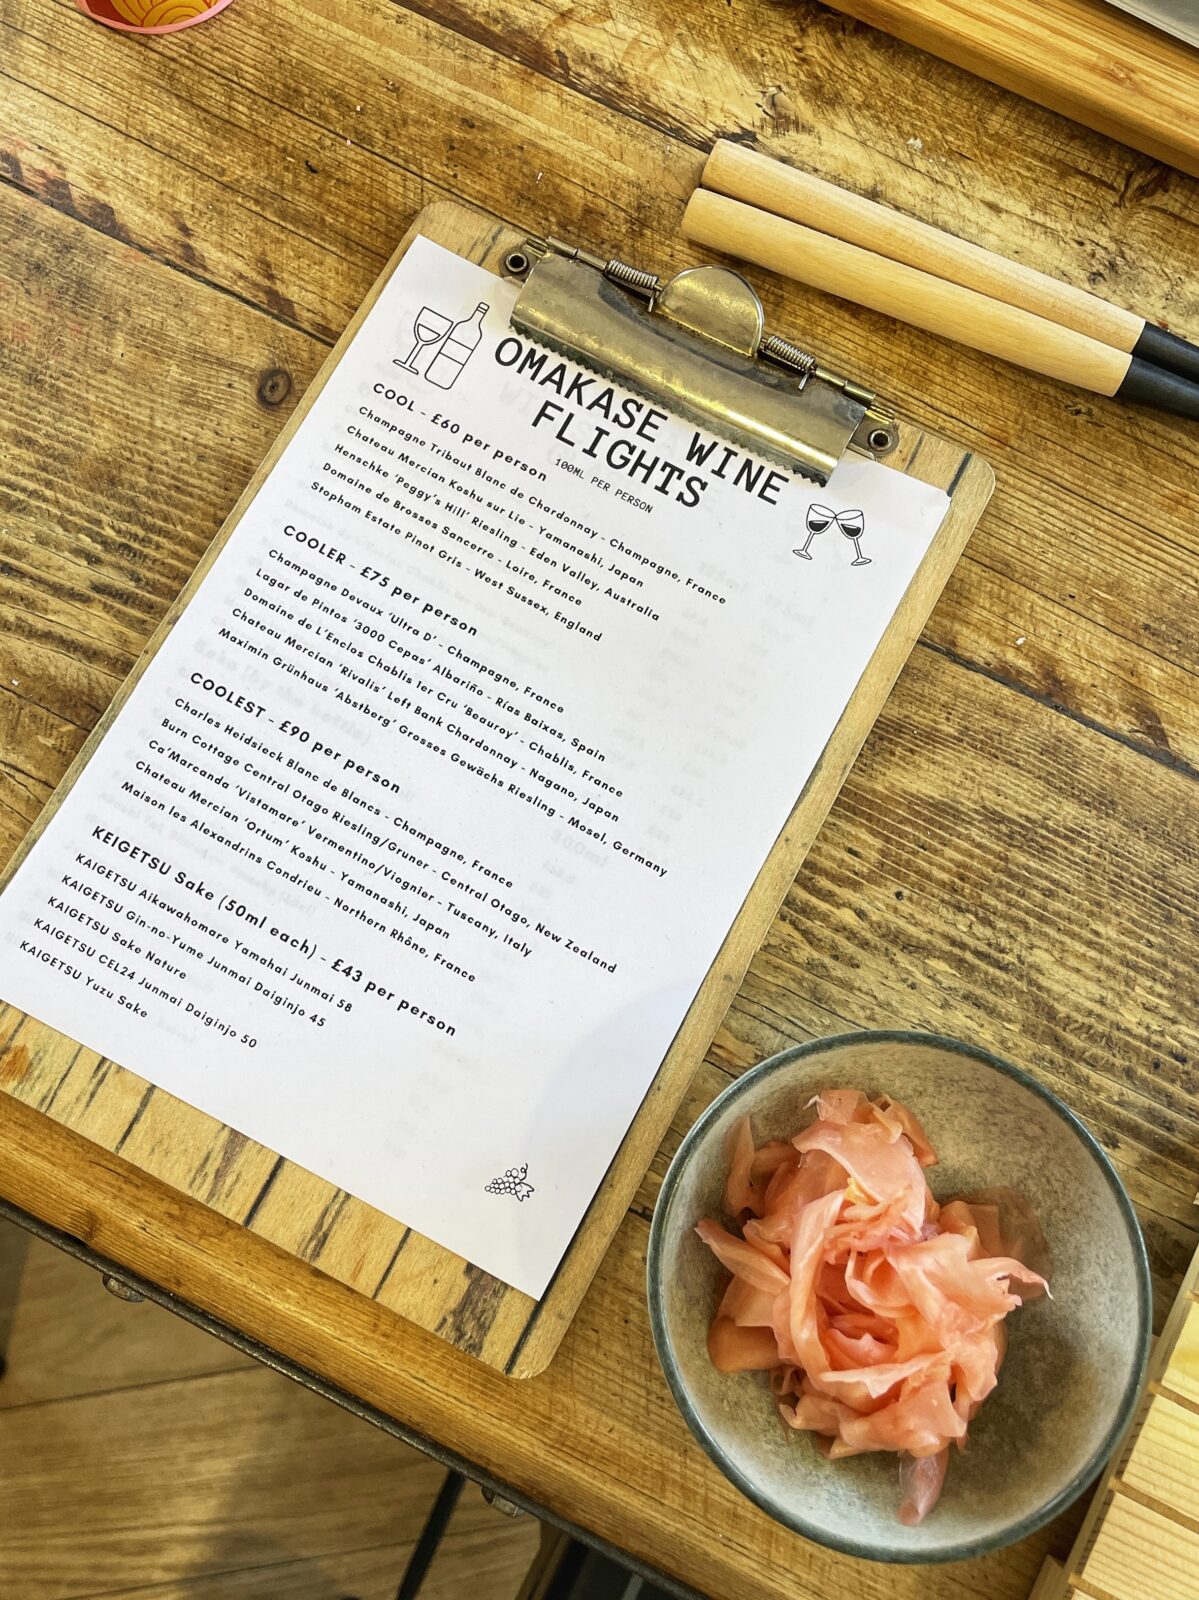 OMAKASE WINE
FLIGHTS
100ML PER PERSON
COOL - £60 per person
Champagne Tribaut Blanc de Chardonnay - Champagne, France
Chateau Mercian Koshu sur Lie - Yamanashi, Japan
Henschke 'Peggy's Hill' Riesling - Eden Valley, Australia
Domaine de Brosses Sancerre - Loire, France
Stopham Estate Pinot Gris - West Sussex, England
COOLER - £75 per person
Champagne Devaux 'Ultra D' - Champagne, France
Lagar de Pintos '3000 Cepas' Albariño - Rías Baixas, Spain
Domaine de L'Enclos Chablis 1er Cru 'Beauroy' - Chablis, France
Chateau Mercian 'Rivalis' Left Bank Chardonnay - Nagano, Japan
Maximin Grünhaus 'Abstberg' Grosses Gewächs Riesling - Mosel, Germany
COOLEST - £90 per person
Charles Heidsieck Blanc de Blancs - Champagne, France
Burn Cottage Central Otago Riesling/Gruner - Central Otago, New Zealand
Ca'Marcanda 'Vistamare' Vermentino/Viognier - Tuscany, Italy
Chateau Mercian 'Ortum' Koshu - Yamanashi, Japan
Maison les Alexandrins Condrieu - Northern Rhône, France
KEIGETSU Sake (50ml each) - £43 per person
KAIGETSU Aikawahomare Yamahai Junmai 58
KAIGETSU Gin-no-Yume Junmai Daiginjo 45
KAIGETSU Sake Nature
KAIGETSU CEL24 Junmai Daiginjo 50
KAIGETSU Yuzu Sake